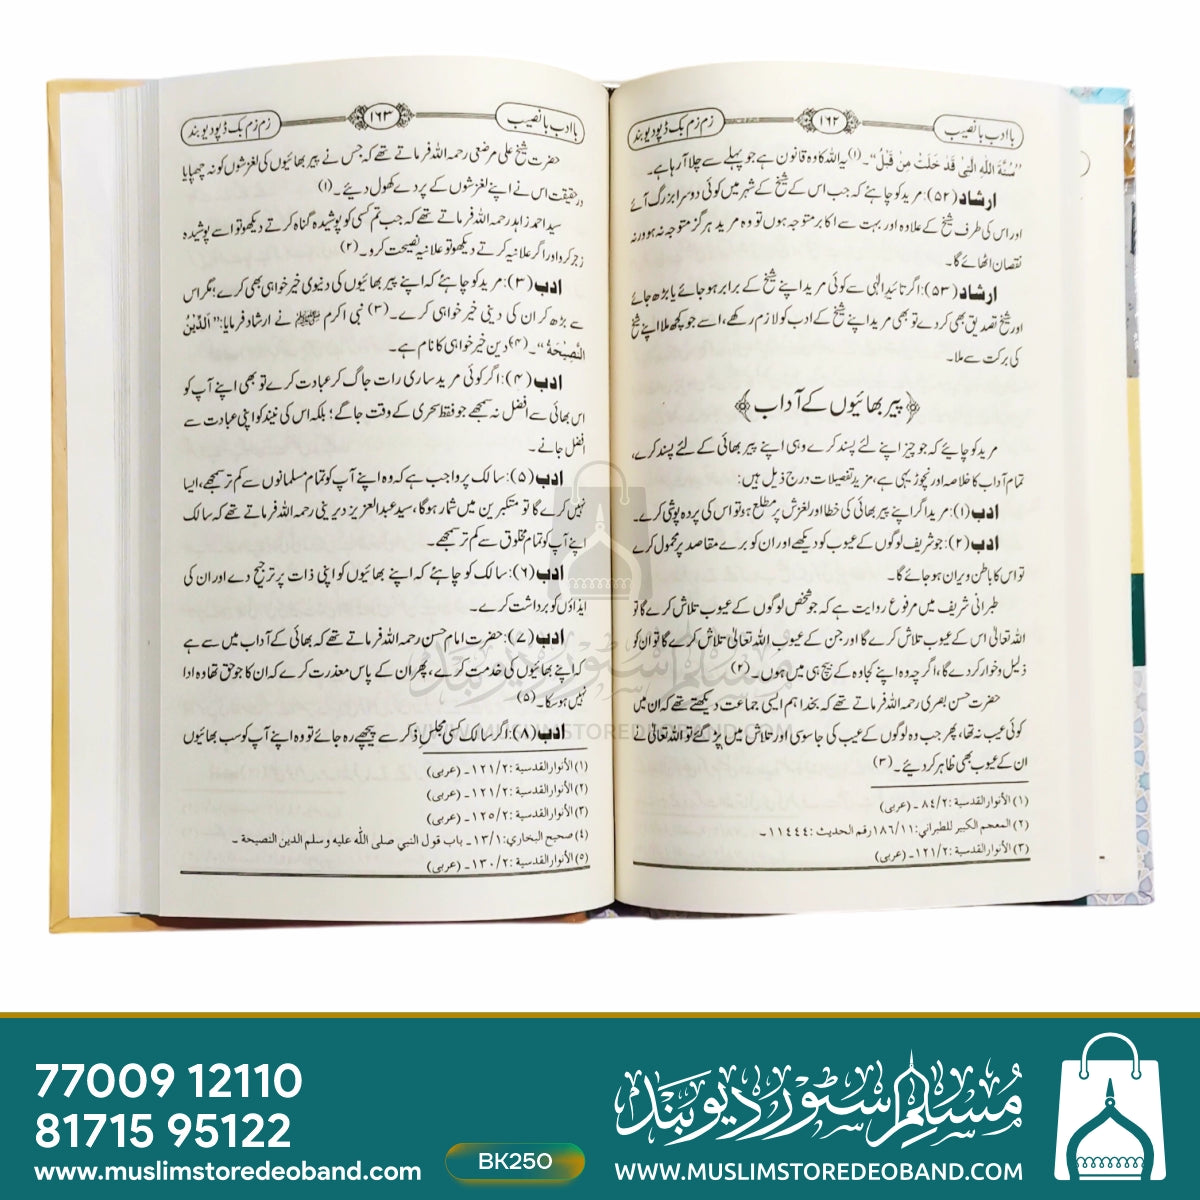 باادب بانصیب
۱۶۲
زم زم بک ڈپو دیوبند
”سُنَّةَ اللهِ الَّتِیْ قَدْ خَلَتْ مِنْ قَبْلُ“۔ (۱) یہ اللہ کا وہ قانون ہے جو پہلے سے چلا آ رہا ہے۔
ارشاد (۵۲): مرید کو چاہئے کہ جب اس کے شیخ کے شہر میں کوئی دوسرا بزرگ آئے
اور اس کی طرف شیخ کے علاوہ اور بہت سے اکابر متوجہ ہوں تو وہ مرید ہرگز متوجہ نہ ہو ورنہ
نقصان اٹھائے گا۔
ارشاد (۵۳): اگر تائیدِ الٰہی سے کوئی مرید اپنے شیخ کے برابر ہو جائے یا بڑھ جائے
اور شیخ تصدیق بھی کر دے تو بھی مرید اپنے شیخ کے ادب کو لازم رکھے، اسے جو کچھ ملا اپنے شیخ
کی برکت سے ملا۔
﴿پیر بھائیوں کے آداب﴾
مرید کو چاہئے کہ جو چیز اپنے لئے پسند کرے وہی اپنے پیر بھائی کے لئے پسند کرے،
تمام آداب کا خلاصہ اور نچوڑ یہی ہے، مزید تفصیلات درج ذیل ہیں:
ادب (۱): مرید اگر اپنے پیر بھائی کی خطا اور لغزش پر مطلع ہو تو اس کی پردہ پوشی کرے۔
ادب (۲): جو شریف لوگوں کے عیوب کو دیکھے اور ان کو برے مقاصد پر محمول کرے
تو اس کا باطن ویران ہو جائے گا۔
طبرانی شریف میں مرفوع روایت ہے کہ جو شخص لوگوں کے عیوب تلاش کرے گا تو
اللہ تعالیٰ اس کے عیوب تلاش کرے گا اور جن کے عیوب اللہ تعالیٰ تلاش کرے گا تو ان کو
ذلیل و خوار کر دے گا، اگرچہ وہ اپنے کجاوہ کے بیچ ہی میں ہوں۔ (۲)
حضرت حسن بصری رحمہ اللہ فرماتے تھے کہ بخدا ہم ایسی جماعت دیکھتے تھے کہ ان میں
کوئی عیب نہ تھا، پھر جب وہ لوگوں کے عیب کی جاسوسی اور تلاش میں پڑ گئے تو اللہ تعالیٰ نے
ان کے عیوب بھی ظاہر کر دیئے۔ (۳)
(۱) الأنوار القدسية: ۸۴/۲ ۔ (عربی)
(۲) المعجم الكبير للطبراني: ۱۸۶/۱۱ رقم الحديث: ۱۱۴۴۴۔
(۳) الأنوار القدسية: ۱۲۱/۲ ۔ (عربی)
باادب بانصیب
۱۶۳
زم زم بک ڈپو دیوبند
حضرت شیخ علی مرضعی رحمہ اللہ فرماتے تھے کہ جس نے پیر بھائیوں کی لغزشوں کو نہ چھپایا
در حقیقت اس نے اپنے لغزشوں کے پردے کھول دیئے۔ (۱)
سید احمد زاہد رحمہ اللہ فرماتے تھے کہ جب تم کسی کو پوشیدہ گناہ کرتے دیکھو تو اسے پوشیدہ
زجر کرو اور اگر علانیہ کرتے دیکھو تو علانیہ نصیحت کرو۔ (۲)
ادب (۳): مرید کو چاہئے کہ اپنے پیر بھائیوں کی دنیوی خیر خواہی بھی کرے؛ مگر اس
سے بڑھ کر ان کی دینی خیر خواہی کرے۔ (۳) نبی اکرم ﷺ نے ارشاد فرمایا: ”اَلدِّیْنُ
النَّصِیْحَةُ“۔ (۴) دین خیر خواہی کا نام ہے۔
ادب (۴): اگر کوئی مرید ساری رات جاگ کر عبادت کرے تو بھی اپنے آپ کو
اس بھائی سے افضل نہ سمجھے جو فقط سحری کے وقت جاگے؛ بلکہ اس کی نیند کو اپنی عبادت سے
افضل جانے۔
ادب (۵): سالک پر واجب ہے کہ وہ اپنے آپ کو تمام مسلمانوں سے کم تر سمجھے، ایسا
نہیں کرے گا تو متکبرین میں شمار ہوگا، سید عبدالعزیز دیرینی رحمہ اللہ فرماتے تھے کہ سالک
اپنے آپ کو تمام مخلوق سے کم تر سمجھے۔
ادب (۶): سالک کو چاہئے کہ اپنے بھائیوں کو اپنی ذات پر ترجیح دے اور ان کی
ایذاؤں کو برداشت کرے۔
ادب (۷): حضرت امام حسن رحمہ اللہ فرماتے تھے کہ بھائی کے آداب میں سے ہے
کہ اپنے بھائیوں کی خدمت کرے، پھر ان کے پاس معذرت کرے کہ ان کا جو حق تھا وہ ادا
نہیں ہو سکا۔ (۵)
ادب (۸): اگر سالک کسی مجلسِ ذکر سے پیچھے رہ جائے تو وہ اپنے آپ کو سب بھائیوں
(۱) الأنوار القدسية: ۱۲۱/۲ ۔ (عربی)
(۲) الأنوار القدسية: ۱۲۱/۲ ۔ (عربی)
(۳) الأنوار القدسية: ۱۲۵/۲ ۔ (عربی)
(۴) صحيح البخاري: ۱۳/۱۔ باب قول النبي صلى الله عليه وسلم الدين النصيحة ۔
(۵) الأنوار القدسية: ۱۳۰/۲ ۔ (عربی)
مسلم سٹور دیوبند
WWW.MUSLIMSTOREDEOBAND.COM
77009 12110
81715 95122
www.muslimstoredeoband.com
BK250
مسلم سٹور دیوبند
WWW.MUSLIMSTOREDEOBAND.COM